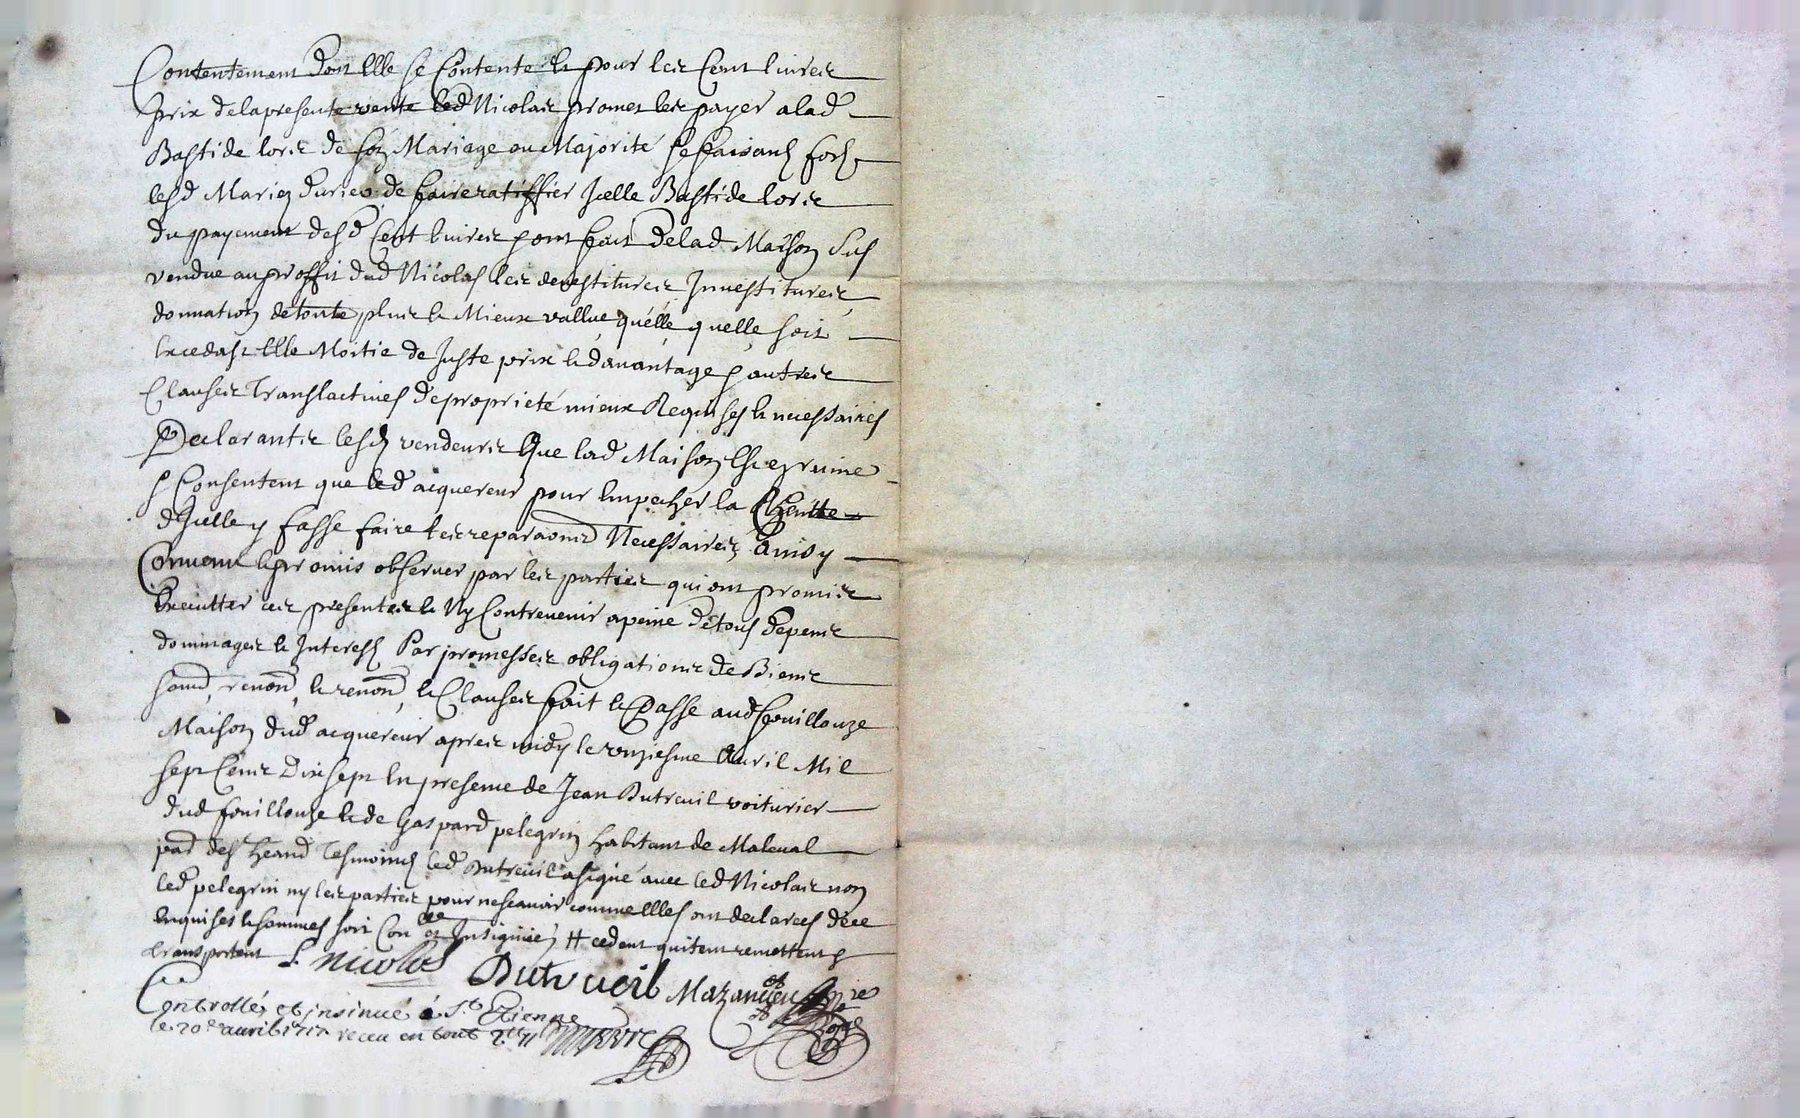 Contentement dont Elle se Contente Et pour les Cent livres
prix de la presente vente led Nicolas promet les payer a lad
Bastide lors de son Mariage ou Majorité se faisant fort
lesd Mariez de faire ratiffier Icelle Bastide lors
du payement desd Cent livres sont fait de lad Maison sus
vendue au proffit dud Nicolas les devestitures Investitures
donnation de toute plus Et Mieux vallue qu'elle quelle soit
Excedast Elle Moitie de Juste prix Et davantage & autres
Clauses Translactives de proprieté mieux Requises Et necessaires
Declarants lesd vendeurs Que lad Maison Est en ruine
& Consentent que led acquereur pour Empecher la Cheutte
d'Icelle y fasse faire les reparaons Necessaires, Ainsy
Convenu Et promis observer par les parties qui ont promis
Executter ces presentes Et Ny Contrevenir a peine de tous depens
dommages Et Interest Par promesses obligations de Biens
soumd, renond, Et renond, Et Clauses fait Et Passe aud fouillouze
Maison dud acquereur apres midy le unziesme Avril Mil
sept Cents Dix sept En presence de Jean Dutreuil voiturier
dud fouillouze Et de Gaspard pelegrin habitant de Maleval
tesmoins led Dutreuil a signé avec led Nicolas non
led pelegrin ny les parties pour ne scavoir comme Elles ont declarées de ce
Enquises Et sommes soit Con olé et Insignüé, # cedent quitent remettent &
transportent L nicolas Dutrueil Mazandieu
Controllé et insinué á St Etienne
le 20e avril 1717 receu en tout